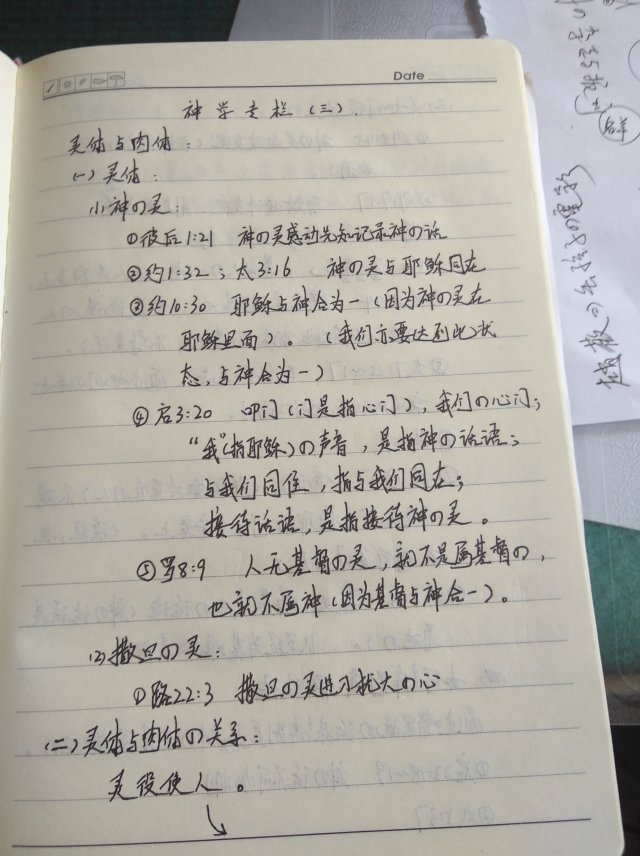 Date
神学专栏（三）.
灵体与肉体：
（一）灵体：
（1）神の灵：
①彼后1:21 神の灵感动先知记录神の话
②约1:32；太3:16 神の灵与耶稣同在
③约10:30 耶稣与神合为一（因为神の灵在
耶稣里面）。（我们亦要达到此状
态，与神合为一）
④启3:20 叩门（门是指心门），我们の心门；
“我”（指耶稣）の声音，是指神の话语；
与我们同住，指与我们同在；
接待话语，是指接待神の灵。
⑤罗8:9 人无基督の灵，就不是属基督の，
也就不属神（因为基督与神合一）。
（2）撒旦の灵：
①路22:3 撒旦の灵进入犹大の心
（二）灵体与肉体の关系：
灵役使人。